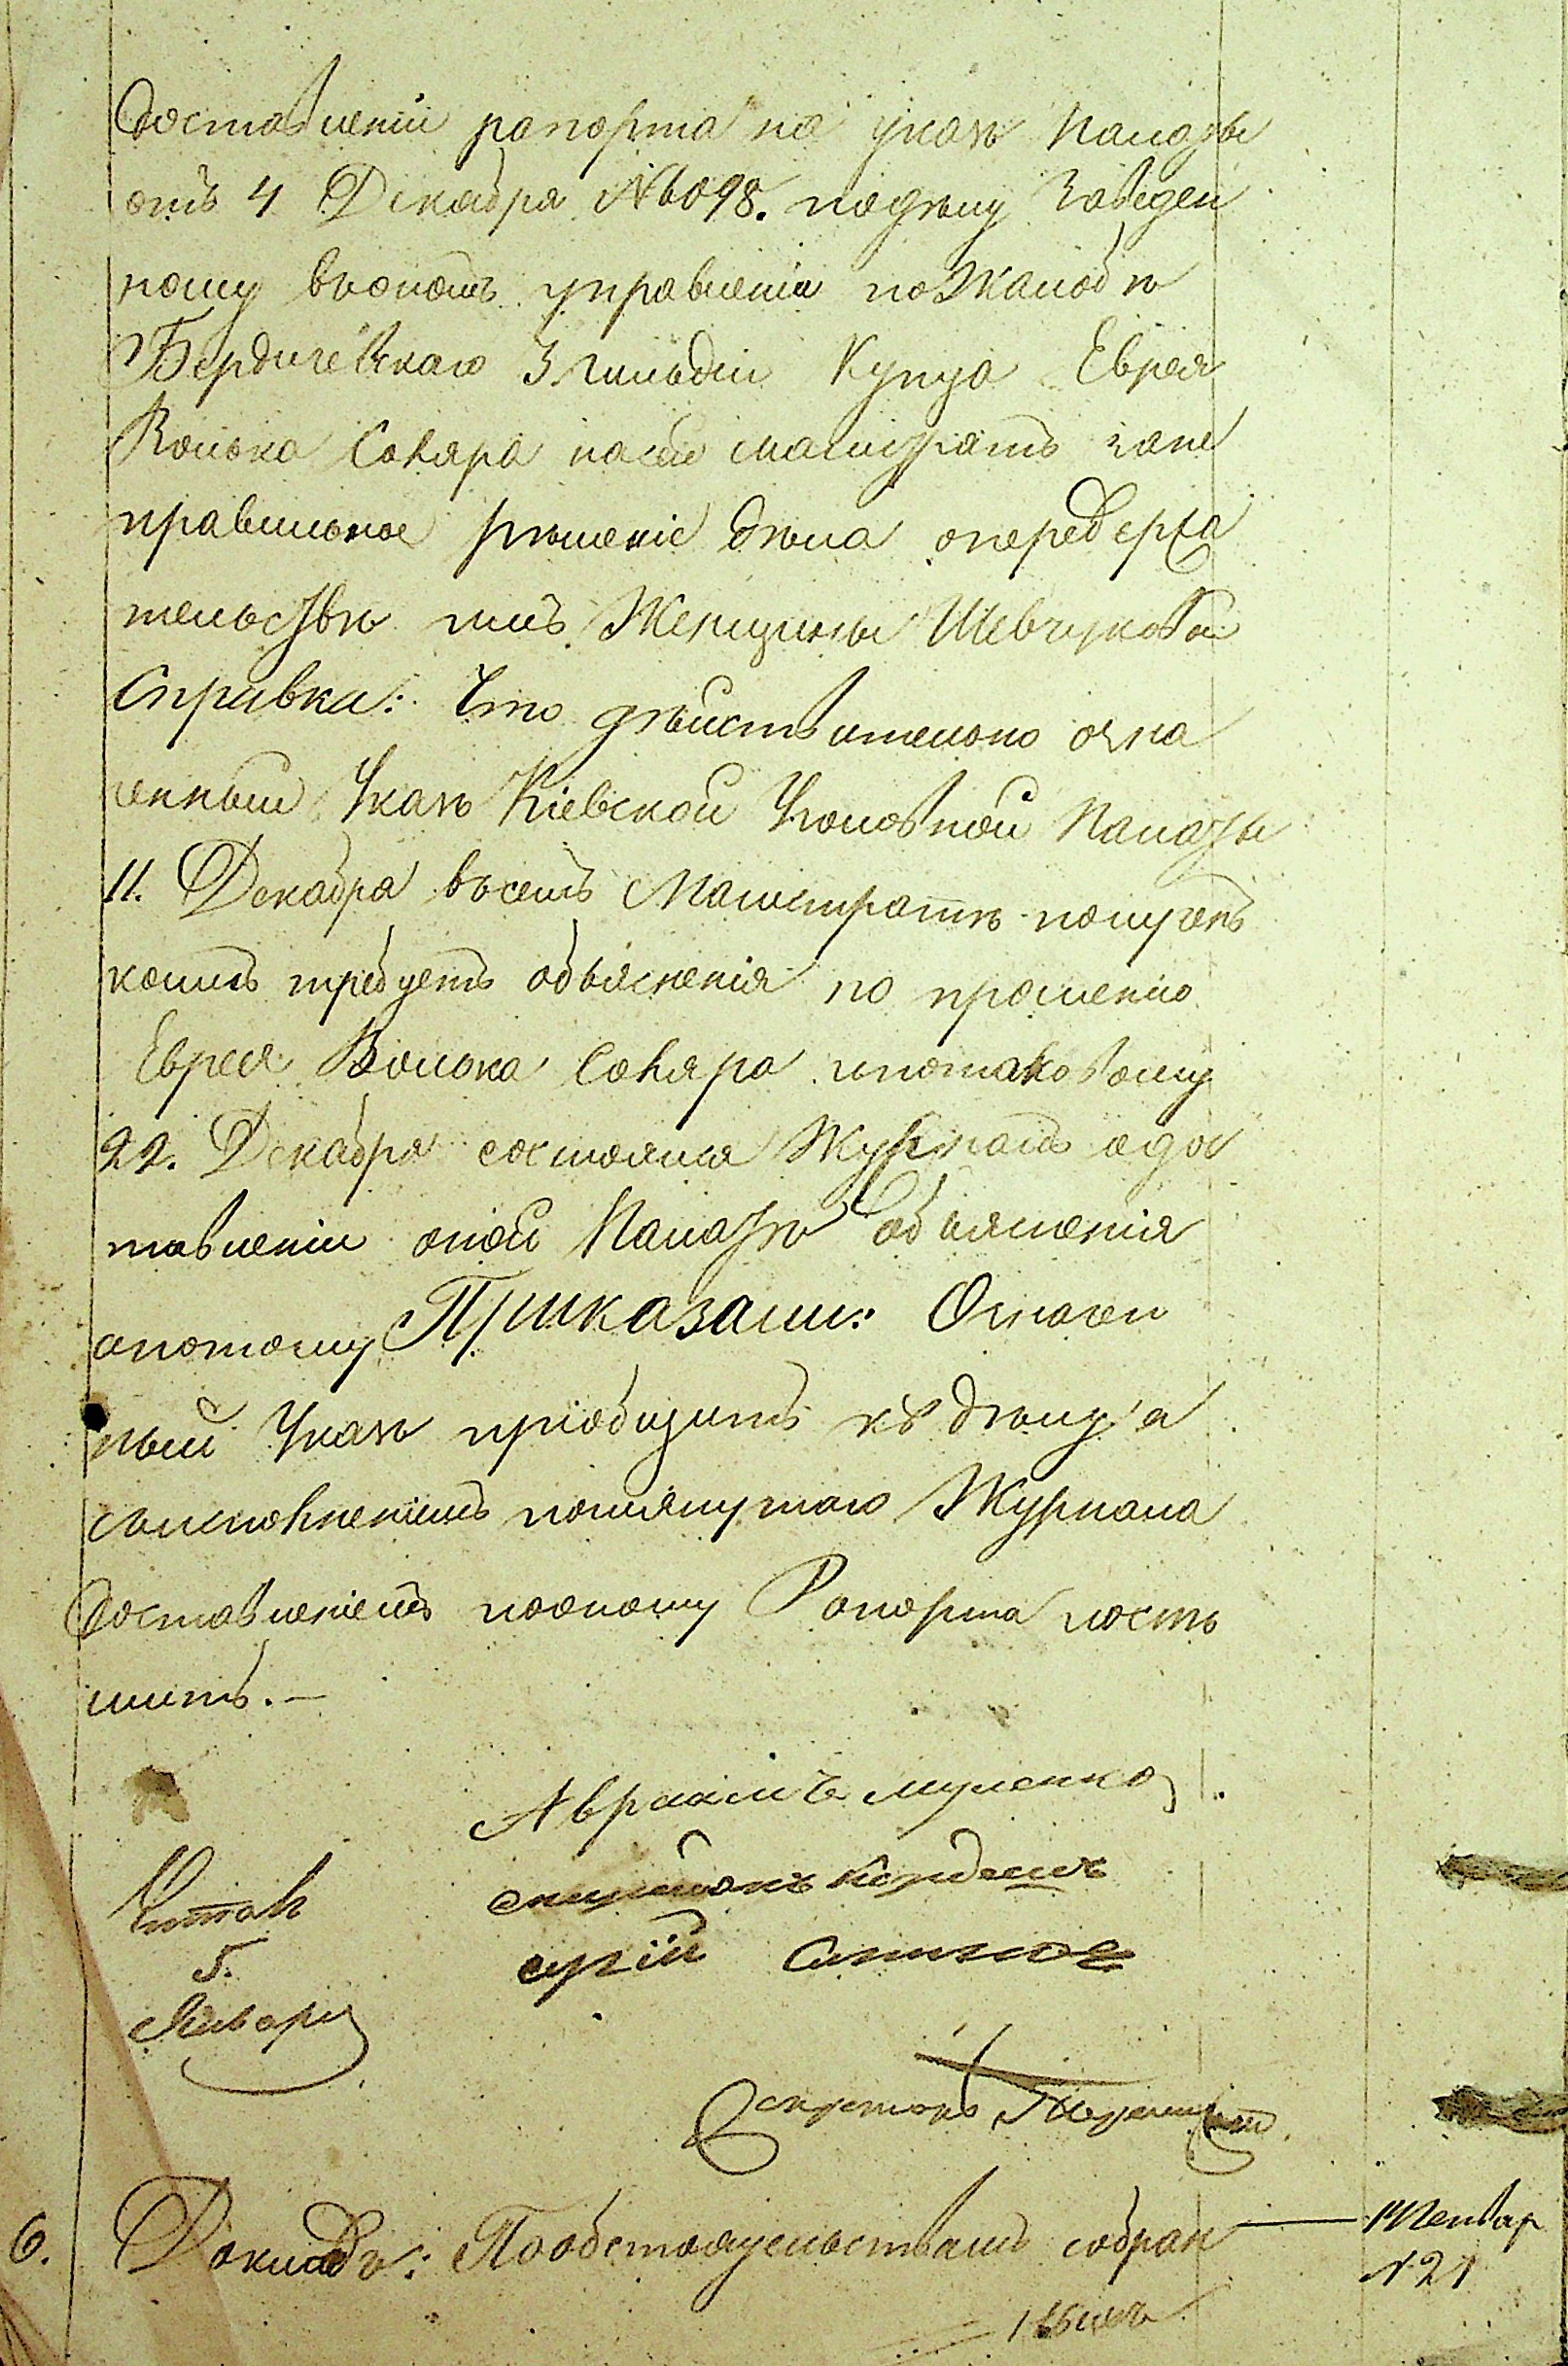 доставленіи рапорта на указъ Палаты
отъ 4 Декабря №6098. подѣлу Заведен
ному въономъ управленіи пожалобѣ
Бердичевскаго 3 гильдіи Купца Еврея
Волька Соляра насей магистратъ зане
правильное рѣшеніе дѣла опередержа
тельствѣ имъ Женщины Шевчуковой
Справка: Что дѣйствительно озна
ченный Указъ Кіевской Уголовной Палаты
11. Декабря въсемъ Магистратѣ полученъ
коимъ требуетъ объясненія по прошенію
Еврея Волька Соляра ипотаковому
22. Декабря состоялся Журналъ одос
тавленіи оной Палатѣ объясненія
апотому Приказали: Означен
ный Указъ пріобщить къ дѣлу а
съисполненіемъ помянутаго Журнала
доставленіемъ поопому Рапорта поспѣ
шить.—
Авраамъ
Читалъ
5.
Января
Секретарь
6. Докладъ: Пообстоятельствамъ собран
14 Генвар
№ 21